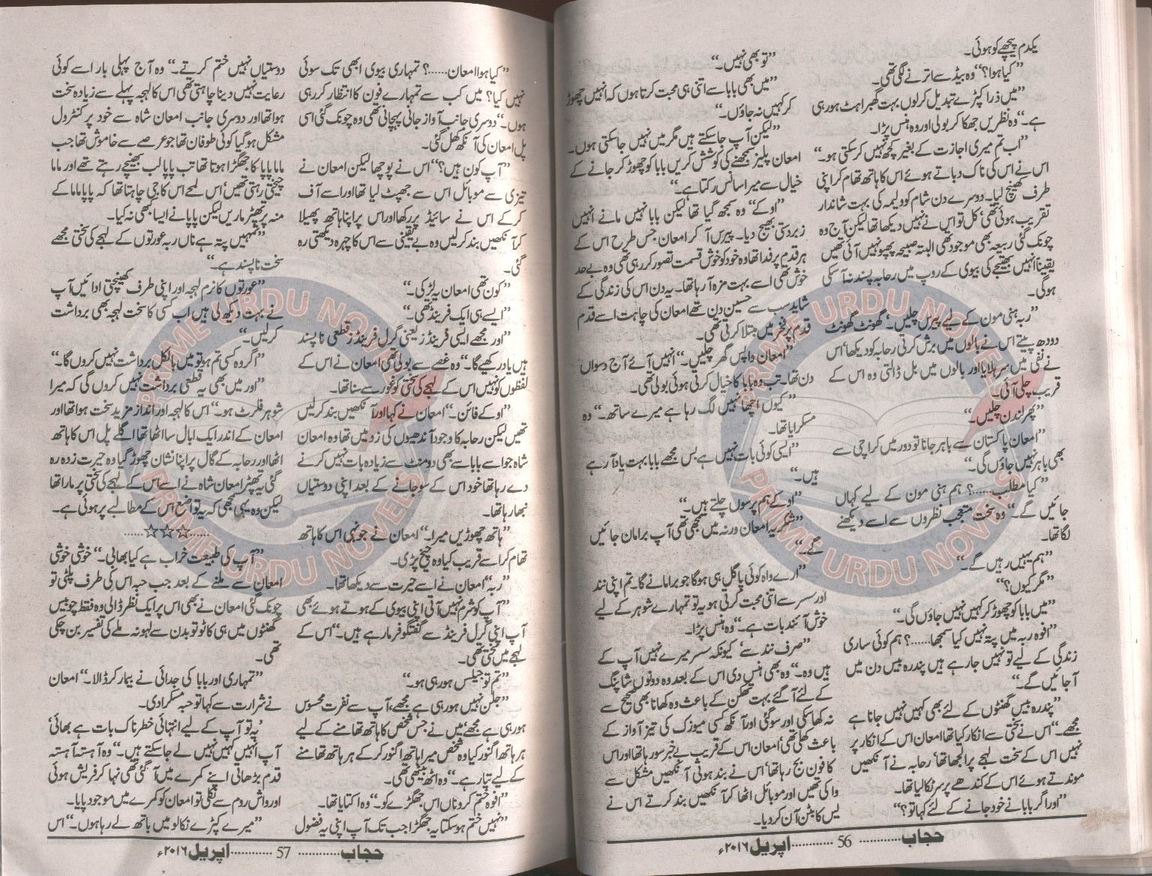 یکدم پیچھے کو ہوئی۔
”کیا ہوا؟“ وہ بیڈ سے اترنے لگی تھی۔
”میں ذرا کپڑے تبدیل کرلوں بہت گھبراہٹ ہو رہی
ہے۔“ وہ نظریں جھکا کر بولی اور وہ ہنس پڑا۔
”اب تم میری اجازت کے بغیر کچھ نہیں کرسکتی ہو۔“
اس نے اس کی ناک دباتے ہوئے اس کا ہاتھ تھام کر اپنی
طرف کھینچ لیا۔ دوسرے دن شام کو ولیمہ کی بہت شاندار
تقریب ہوئی تھی، کل تو اس نے نہیں دیکھا تھا لیکن آج وہ
چونک گئی ربیعہ بھی موجود تھی البتہ پھپو نہیں آئی تھیں
یقیناً انہیں بھتیجے کی بیوی کے روپ میں رحابہ پسند نہ آسکی
ہوگی۔
”ربہ ہنی مون کے لیے پیرس چلیں۔“ گھونٹ گھونٹ
دودھ پیتے اس نے بالوں میں برش کرتی رحابہ کو دیکھا، اس
نے نفی میں سر ہلایا اور بالوں میں بل ڈالتی وہ اس کے
قریب چلی آئی۔
”پھر لندن چلیں۔“
”امعان پاکستان سے باہر جانا تو دور میں کراچی سے
بھی باہر نہیں جاؤں گی۔“
”کیا مطلب......؟ ہم ہنی مون کے لیے کہاں
جائیں گے۔“ وہ سخت متعجب نظروں سے اسے دیکھنے
لگا تھا۔
”ہم یہیں رہیں گے۔“
”مگر کیوں؟“
”میں بابا کو چھوڑ کر کہیں نہیں جاؤں گی۔“
”افوہ ربہ میں پتہ نہیں کیا سمجھا......؟ ہم کوئی ساری
زندگی کے لیے تو نہیں جارہے ہیں پندرہ بیس دن میں
آجائیں گے۔“
”پندرہ بیس گھنٹوں کے لئے بھی کہیں نہیں جانا ہے
مجھے۔“ اس نے سختی سے انکار کیا تھا، امعان اس کے انکار پر
نہیں اس کے سخت لہجے پر الجھا تھا، رحابہ نے آنکھیں
موندتے ہوئے اس کے کندھے پر سر ٹکالیا تھا۔
”اور اگر بابا نے خود جانے کے لئے کہا تو؟“
”تو بھی نہیں۔“
”میں بھی بابا سے اتنی ہی محبت کرتا ہوں کہ انہیں چھوڑ
کر کہیں نہ جاؤں۔“
”لیکن آپ جاسکتے ہیں مگر میں نہیں جاسکتی ہوں۔
امعان پلیز سمجھنے کی کوشش کریں بابا کو چھوڑ کر جانے کے
خیال سے میرا سانس رکتا ہے۔“
”اوکے“ وہ سمجھ گیا تھا لیکن بابا نہیں مانے انہیں
زبردستی بھیج دیا۔ پیرس آکر امعان جس طرح اس کے
ہر قدم پر فدا تھا وہ خود کو خوش قسمت تصور کر رہی تھی وہ بے حد
خوش تھی اسے بہت مزہ آرہا تھا۔ یہ دن اس کی زندگی کے
شاید سب سے حسین دن تھے امعان کی چاہت اسے قدم
قدم پر فخر میں مبتلا کرتی تھی۔
”امعان واپس گھر چلیں۔“ انہیں آئے آج دسواں
دن تھا۔ تب وہ بابا کا خیال کرتی ہوئی بولی تھی۔
”کیوں اچھا نہیں لگ رہا ہے میرے ساتھ۔“ وہ
مسکرایا تھا۔
”ایسی کوئی بات نہیں ہے بس مجھے بابا بہت یاد آرہے
ہیں۔“
”اوکے ہم پرسوں چلتے ہیں۔“
”شکریہ امعان ورنہ میں سمجھی تھی آپ برا مان جائیں
گے۔“
”ارے واہ کوئی پاگل ہی ہوگا جو برا مانے گا۔ تم اپنی نند
اور سسر سے اتنی محبت کرتی ہو یہ تو تمہارے شوہر کے لیے
خوش آئند بات ہے۔“ وہ ہنس پڑا۔
”صرف نند سے، کیونکہ سسر میرے نہیں آپ کے
ہیں وہ۔“ وہ بھی ہنس دی اس کے بعد وہ دونوں شاپنگ
کے لئے آگئے بہت تھکن کے باعث وہ کھانا بھی صحیح سے
نہ کھاسکی اور سو گئی اور آنکھ کسی میوزک کی تیز آواز کے
باعث کھلی تھی، امعان اس کے قریب بے خبر سو رہا تھا اور اس
کا فون بج رہا تھا، اس نے بند ہوتی آنکھیں مشکل سے
وا کی تھیں اور موبائل اٹھا کر آنکھیں بند کرتے اس نے
لیس کا بٹن آن کر دیا۔
حجاب ............ 56 ............ اپریل ۲۰۱۶ء
”کیا ہوا امعان......؟ تمہاری بیوی ابھی تک سوئی
نہیں کیا؟ میں کب سے تمہارے فون کا انتظار کر رہی
ہوں۔“ دوسری جانب آواز جانی پہچانی تھی وہ چونک گئی اسی
پل امعان کی آنکھ کھل گئی۔
”آپ کون ہیں؟“ اس نے پوچھا لیکن امعان نے
تیزی سے موبائل اس سے جھپٹ لیا تھا اور اسے آف
کر کے اس نے سائیڈ پر رکھا اور اس پر اپنا ہاتھ پھیلا
کر آنکھیں بند کرلیں وہ بے یقینی سے اس کا چہرہ دیکھتی رہ
گئی۔
”کون تھی امعان یہ لڑکی۔“
”ایسے ہی ایک فرینڈ تھی۔“
”اور مجھے ایسی فرینڈز یعنی گرل فرینڈز قطعی ناپسند
ہیں یاد رکھیے گا۔“ وہ غصے سے بولی تھی امعان نے اس کے
لفظوں کو نہیں اس کے لہجے کی سختی کو غور سے سنا تھا۔
”اوکے فائن۔“ امعان نے کہا اور آنکھیں بند کرلیں
تھیں لیکن رحابہ کا وجود آندھیوں کی زد میں تھا وہ امعان
شاہ جو اسے بابا سے بھی دو منٹ سے زیادہ بات نہیں کرنے
دے رہا تھا خود اس کے سو جانے کے بعد اپنی دوستیاں
نبھا رہا تھا۔
”ہاتھ چھوڑیں میرا۔“ امعان نے جونہی اس کا ہاتھ
تھام کر اسے قریب کیا وہ چیخ پڑی۔
”ربہ“ امعان نے اسے حیرت سے دیکھا تھا۔
”آپ کو شرم نہیں آئی اپنی بیوی کے ہوتے ہوئے بھی
آپ اپنی گرل فرینڈ سے گفتگو فرما رہے ہیں۔“ اس کے
لہجے میں سختی تھی۔
”تم تو جیلس ہو رہی ہو۔“
”جلن نہیں ہو رہی ہے مجھے، آپ سے نفرت محسوس
ہو رہی ہے مجھے میں نے جس شخص کا ہاتھ تھامنے کے لیے
ہر ہاتھ اگنور کیا وہ شخص میرا ہاتھ اگنور کر کے ہر ہاتھ تھامنے
کے لیے تیار ہے۔“ وہ اٹھ بیٹھی تھی۔
”افوہ ختم کرو ناں اس جھگڑے کو۔“ وہ اکتایا تھا۔
”نہیں ختم ہو سکتا یہ جھگڑا جب تک آپ اپنی یہ فضول
دوستیاں نہیں ختم کرتے۔“ وہ آج پہلی بار اسے کوئی
رعایت نہیں دینا چاہتی تھی اس کا لہجہ پہلے سے زیادہ سخت
ہوا تھا اور دوسری جانب امعان شاہ سے خود پر کنٹرول
مشکل ہو گیا کوئی طوفان تھا جو عرصے سے خاموش تھا جب
ماما پاپا کا جھگڑا ہوتا تھا تب پاپا لب بھینچے رہتے تھے اور ماما
چیختی رہتی تھیں، اس لمحے اس کا جی چاہتا تھا کہ پاپا ماما کے
منہ پر تھپڑ ماریں لیکن پاپا نے ایسا کبھی نہ کیا۔
”تمہیں پتہ ہے ناں ربہ عورتوں کے لہجے کی سختی مجھے
سخت ناپسند ہے۔“
”عورتوں کا نرم لہجہ اور اپنی طرف کھینچتی ادائیں آپ
نے بہت دیکھ لی ہیں اب کسی کا سخت لہجہ بھی برداشت
کرلیں۔“
”مگر وہ کسی تم ہو تو میں بالکل برداشت نہیں کروں گا۔“
”اور میں بھی یہ قطعی برداشت نہیں کروں گی کہ میرا
شوہر فلرٹ ہو۔“ اس کا لہجہ اور انداز مزید سخت ہوا تھا اور
امعان کے اندر ایک ابال سا اٹھا تھا اگلے پل اس کا ہاتھ
اٹھا اور رحابہ کے گال پر اپنا نشان چھوڑ گیا وہ حیرت زدہ رہ
گئی یہ تھپڑ امعان شاہ نے اسے اس کے لہجے کی سختی پر مارا تھا
لیکن وہ یہی سمجھی کہ یہ تواضع اس کے مطالبے پر ہوئی ہے۔
......☆☆☆......
”آپ کی طبیعت خراب ہے کیا بھابی۔“ خوشی خوشی
امعان سے ملنے کے بعد جب حبہ اس کی طرف پلٹی تو
چونک گئی امعان نے بھی اس پر ایک نظر ڈالی وہ فقط چوبیس
گھنٹوں میں ہی کاٹو تو بدن سے لہو نہ ملے کی تفسیر بن چکی
تھی۔
”تمہاری اور بابا کی جدائی نے بیمار کر ڈالا۔“ امعان
نے شرارت سے کہا تو حبہ مسکرا دی۔
”یہ تو آپ کے لیے انتہائی خطرناک بات ہے بھائی،
آپ انہیں کہیں نہیں لے جاسکتے ہیں۔“ وہ آہستہ آہستہ
قدم بڑھاتی اپنے کمرے میں آگئی تھی نہا کر فریش ہوئی
اور واش روم سے نکلی تو امعان کو کمرے میں موجود پایا۔
”میرے کپڑے نکالو میں باتھ لے رہا ہوں۔“ اس
حجاب ............ 57 ............ اپریل ۲۰۱۶ء
PRIME URDU NOVELS
PRIME URDU NOVELS
PRIME URDU NOVELS
PRIME URDU NOVELS